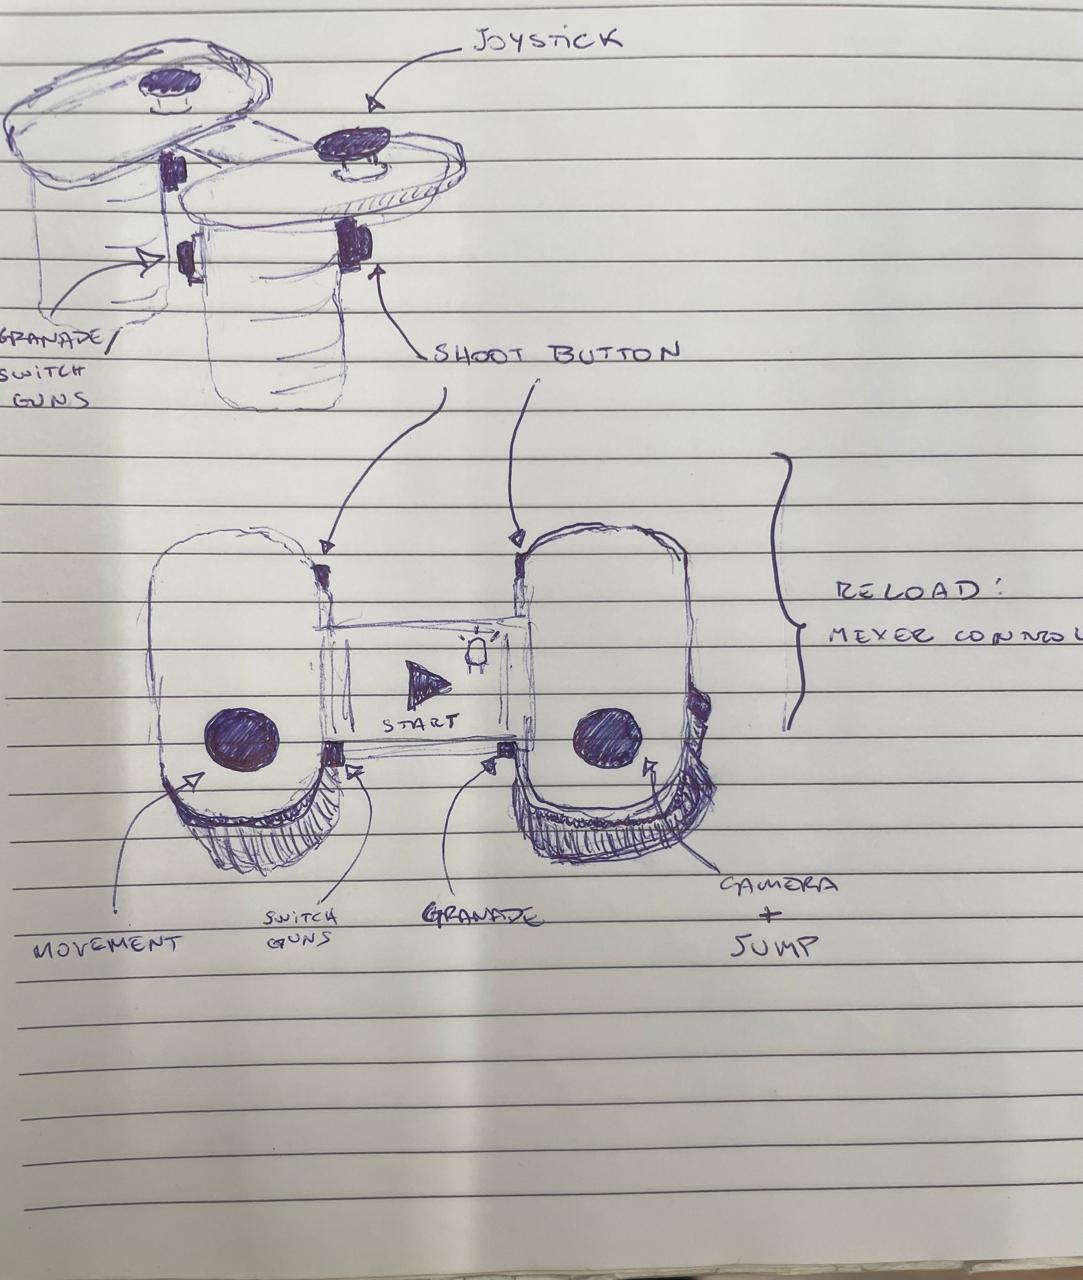 JOYSTICK
GRANADE/
SWITCH
GUNS
SHOOT BUTTON
RELOAD:
MEXER CONTROL
START
MOVEMENT
SWITCH
GUNS
GRANADE
CAMERA
+
JUMP